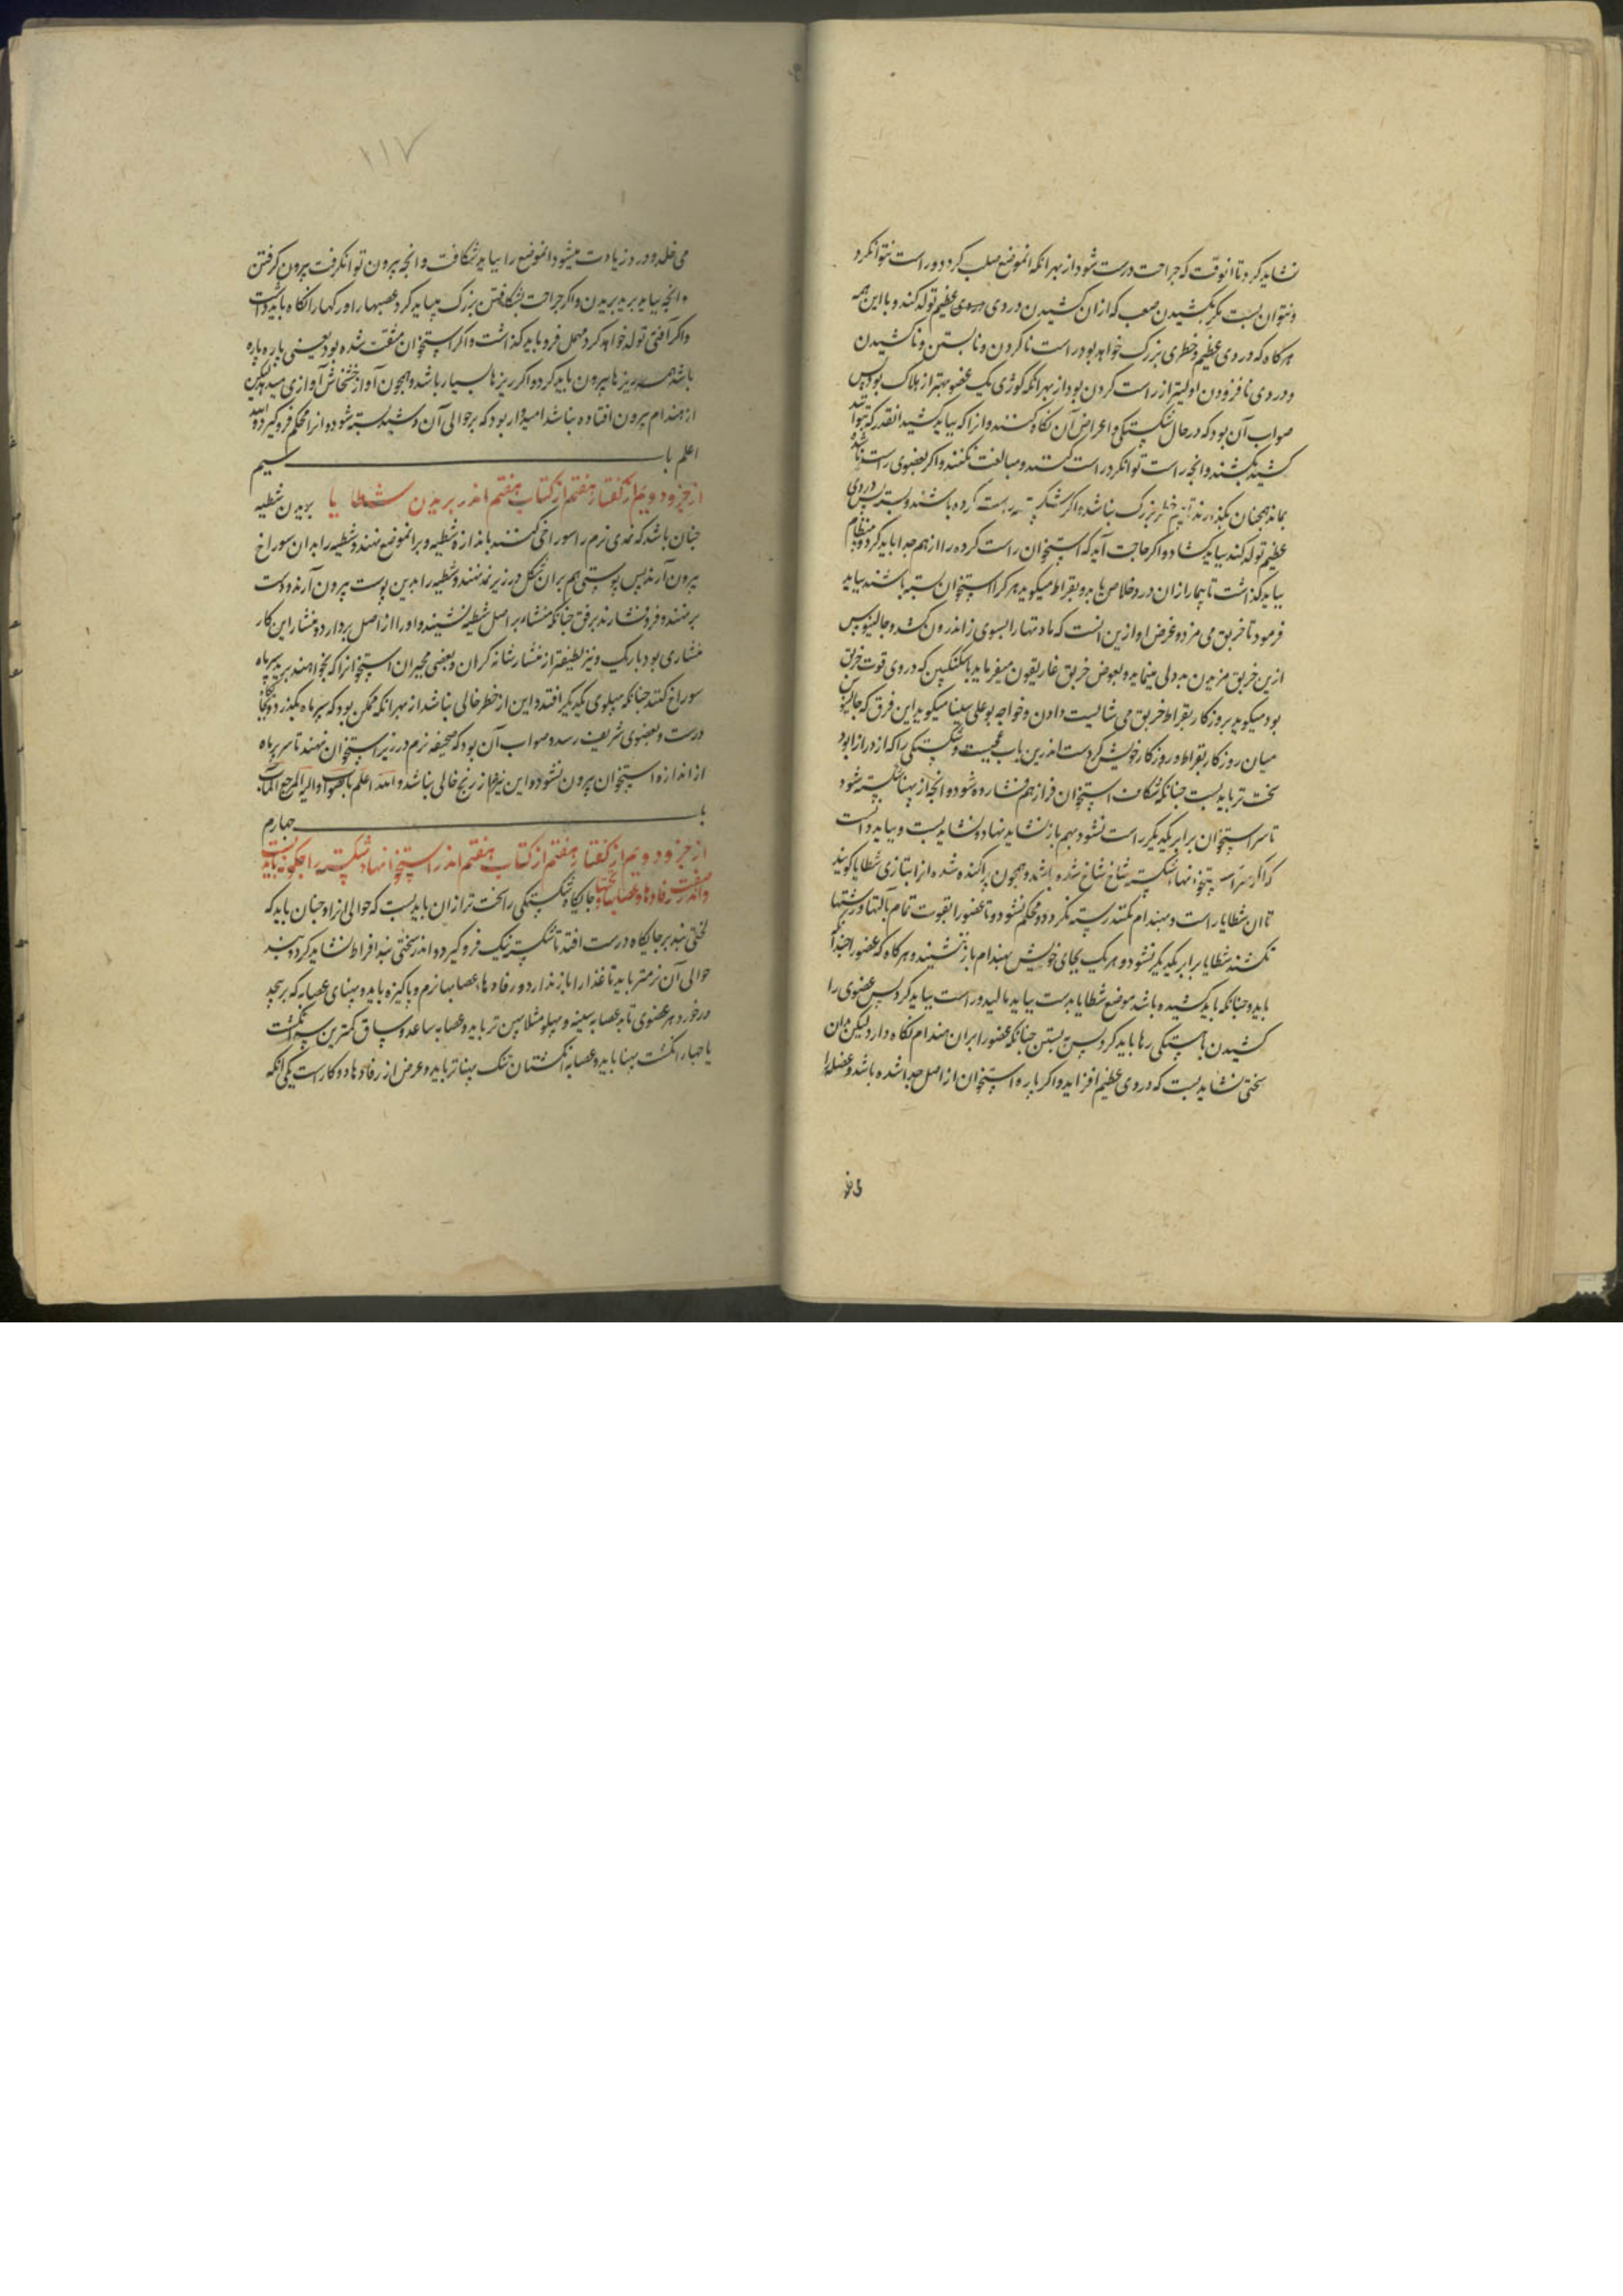 نشاید کرد تا انوقت که جراحت درست شود از بهر انکه انموضع صلب کردد و راست نتوان کرد
و نتوان بست مکر بکشیدن صعب که ازان کشیدن دردی عظیم تولد کند و با این همه
هرکاه که دردی عظیم و خطری بزرک خواهد بود راست ناکردن و نابستن و ناکشیدن
و دردی نافزودن اولیتر از راست کردن بود از بهر انکه کوژی یک عضو بهتر از هلاک بود پس
صواب آن بود که در حال شکستکی و اعراض آن نکاه کنند و انرا که بباید کشید انقدر که بتواند
کشید بکشند و انچه راست توان کرد راست کنند و مبالغت نکنند و اکر عضوی راست ناشده
بماند همچنان بکذارند تا بیم خطر بزرک نباشد و اکر شکسته راست کرده باشند و بسته پس دردی
عظیم تولد کند بباید کشاد و اکر حاجت آید که استخوان راست کرده را از هم جدا باید کرد و بی نظام
بباید کذاشت تا بیمار ازان درد خلاص یابد و بقراط میکوید هر کرا استخوان بسته باشند بباید
فرمود تا خربق می مزد و غرض او ازین انست که مادتها را بسوی زاندرون کشد و جالینوس
ازین خربق مزیدن بددلی مینماید و بعوض خربق غاریقون میفرماید با سکنکبین که در وی قوت خربق
بود میکوید بروزکار بقراط خربق می شایست دادن و خواجه بوعلی سینا میکوید این فرق که جالینوس
میان روزکار بقراط و روزکار خویش کردست اندرین باب عجبیست و شکستکی را که از درازا بود
سخت تر باید بست چنانکه شکاف استخوان فراز هم فشارده شود و انچه از پهنا شکسته شود
تا سر استخوان برابر یکدیکر راست نشود بهم باز نشاید نهاد و نشاید بست و بباید دانست
که اکر سر استخوانهاء شکسته شاخ شاخ شده باشد و همچون پراکنده شده انرا بتازی شطایا کویند
تا ان شطایا راست و بهندام نکنند رسته نکردد و محکم نشود و تا عضو را بقوت تمام بآلتها و رشتها
نکشند شطایا برابر یکدیکر نشود و هر یک بجای خویش بهندام باز ننشیند و هرکاه که عضو را چندانکه
باید و چنانکه باید کشیده باشد موضع شطایا بدست بباید مالید و راست بباید کرد پس عضوی را
کشیدن باهستکی رها باید کرد پس به بستن چنانکه عضو را بران هندام نکاه دارد لیکن بدان
سختی نشاید بست که دردی عظیم افزاید و اکر پاره استخوان از اصل جدا شده باشد و عضله را
۱۱۷
می خلد و درد زیادت میشود انموضع را بباید شکافت و انچه بیرون توان کرفت بیرون کرفتن
و انچه بباید برید بریدن و اکر جراحت بشکافتن بزرک بباید کرد عصبها را و رکها را نکاه باید داشت
و اکر آفتی تولد خواهد کرد مهمل فرو باید کذاشت و اکر استخوان مفتت شده بود یعنی پاره پاره
باشد همه ریزها بیرون باید کرد و اکر ریزها بسیار باشد و همچون آواز خشخاش آوازی میدهد لیکن
از هندام بیرون افتاده نباشد امیدوار بود که بر حوالی آن دشبد بسته شود و انرا محکم فرو کیرد والله
اعلم باب سیم
از جزو دویم از کفتار هفتم از کتاب هفتم اندر بریدن شطایا بریدن شطیه
چنان باشد که نمدی نرم را سوراخ کنند باندازه شطیه و بر انموضع نهند و شطیه را بدان سوراخ
بیرون آرند پس پوستی هم بران شکل در زیر نمد نهند و شطیه را بدین پوست بیرون آرند و دست
برنهند و فرو فشارند برفق چنانکه منشار بر اصل شطیه نشیند و او را از اصل بردارد و منشار این کار
منشاری بود باریک و تیز لطیفتر از منشار شانه کران و بعضی مجبران استخوانرا که بخواهند برید ببرماه
سوراخ کنند چنانکه بپهلوی یکدیکر افتد و این از خطر خالی نباشد از بهر انکه ممکن بود که برماه بکذرد و بجای
درست و بعضوی شریف رسد و صواب آن بود که صحیفه نرم در زیر استخوان نهند تا سر برماه
از اندازه استخوان بیرون نشود و این نیز هم از رنج خالی نباشد والله اعلم بالصواب والیه المرجع المآب
باب چهارم
از جزو دویم از کفتار هفتم از کتاب هفتم اندر استخوانهاء شکسته را چکونه باید بست
و اندر صفت رفادها و عصابها و تختها جایکاه شکستکی را سخت تر ازان باید بست که حوالی انرا و چنان باید که
سختی بند بر جایکاه درست افتد تا شکسته نیک فرو کیرد و اندر سختی بند افراط نشاید کرد و بند
حوالی آن نرمتر باید تا غذا را باز ندارد و رفادها و عصابها نرم و پاکیزه باید و پهنای عصابه که برپیچد
درخورد هر عضوی باید عصابه سینه و پهلو مثلا پهن تر باید و عصابه ساعد و ساق کمترین سه انکشت
یا چهار انکشت پهنا باید و عصابه انکشتان تنک پهناتر باید و غرض از رفادها دو کار است یکی انکه